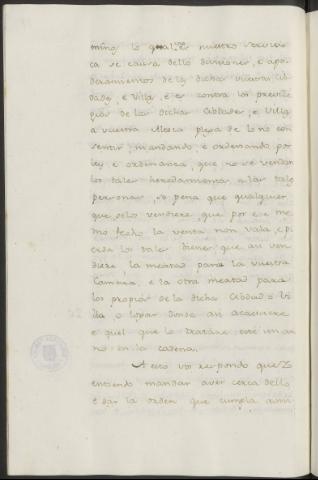 mino lo qual es vuestro servicio
ca se causa dello divisiones, e apo-
deramientos de las dichas vuestras cib-
dades, e Villas, e es contra los previle-
gios de las dichas Cibdades, e Villas
a vuestra Alteza plega de lo no con
sentir, mandando, e ordenando por
ley, e ordenanza, que no se vendan
los tales heredamientos a las tales
personas, so pena que qualquier
que gelo vendiere, que por ese mes
mo fecho la venta non vala, e pi
erda los tales bienes que asi ven
diere la meatad para la vuestra
Camara, e la otra meatad para
los propios de la dicha Cibdad o Vi
lla o logar donde asi acaeciere
e quel que lo tratare esté un an
no en la cadena.
A esto vos respondo que Yo
entiendo mandar aver cerca dello
e dar la orden que cumpla a mi